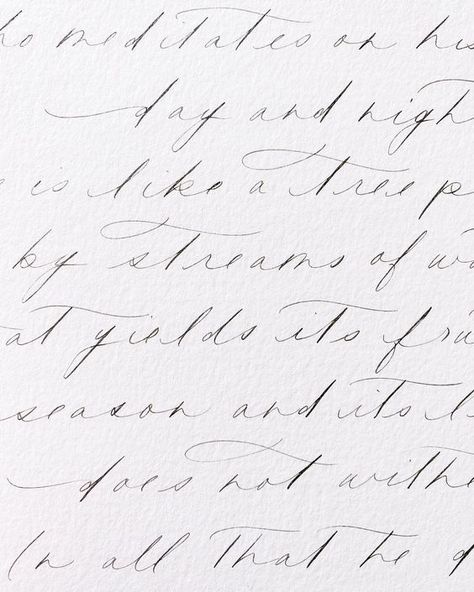 ho meditates on his
day and nigh
e is like a tree p
by streams of wa
at yields its fru
season and its l
does not withe
In all that he d